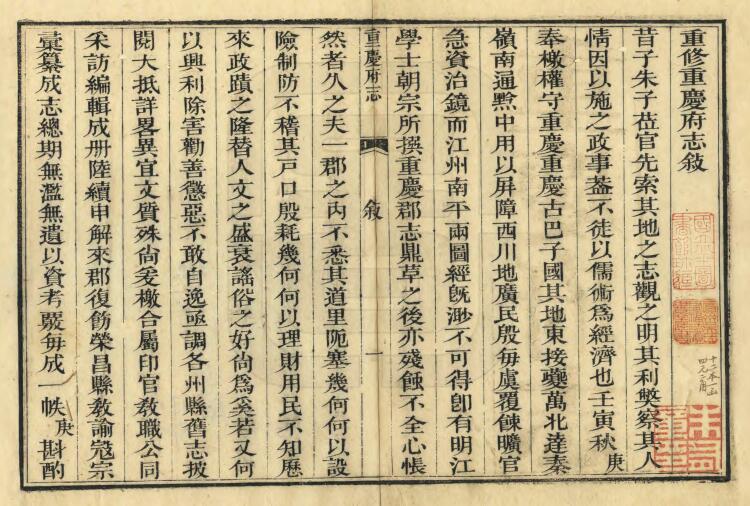 重修重慶府志敘
昔子朱子莅官先索其地之志觀之明其利獘察其人
情因以施之政事葢不徒以儒術爲經濟也壬寅秋庚
奉檄權守重慶重慶古巴子國其地東接夔萬北達秦
嶺南通黔中用以屏障西川地廣民殷每虞覆餗曠官
急資治鏡而江州南平兩圖經旣渺不可得卽有明江
學士朝宗所撰重慶郡志鼎草之後亦殘蝕不全心悵
重慶府志
敘
一
然者久之夫一郡之內不悉其道里阨塞幾何何以設
險制防不稽其戸口殷耗幾何何以理財用民不知歷
來政蹟之隆替人文之盛衰謠俗之好尙爲奚若又何
以興利除害勸善懲惡不敢自逸亟調各州縣舊志披
閱大抵詳畧異宜文質殊尙爰檄合屬印官敎職公同
采訪編輯成册陸續申解來郡復飭榮昌縣敎諭寇宗
彙纂成志總期無濫無遺以資考覈每成一帙庚斟酌